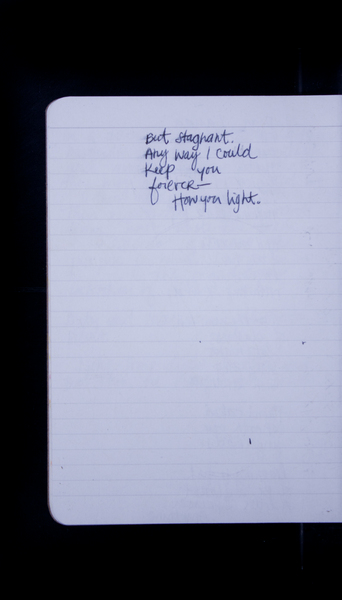 But stagnant.
Any way I could
Keep you
forever—
How you light.